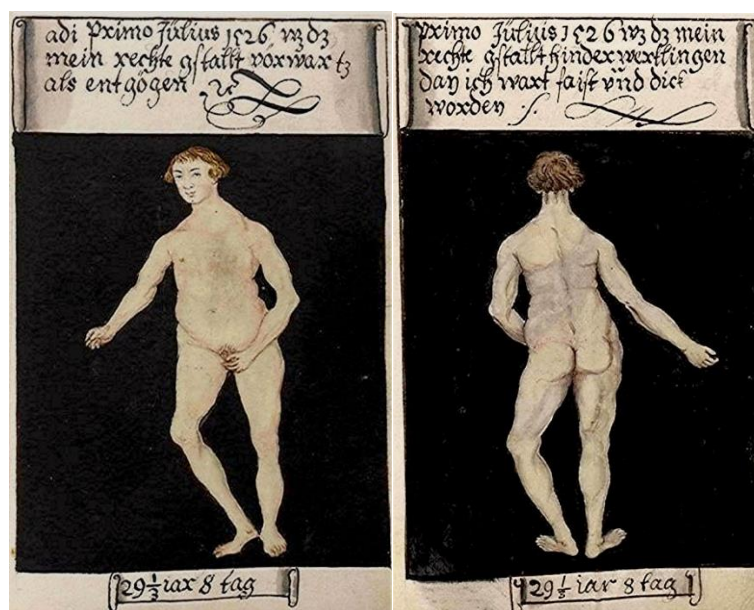 adi primo Jülius 1526 wz dz
mein rechte gstallt vorwartz
als entgögen
29 1/3 iar 8 tag
primo Jülius 1526 wz dz mein
rechte gstallt hinderwertlingen
dan ich wart faist ünd dick
worden
29 1/3 iar 8 tag